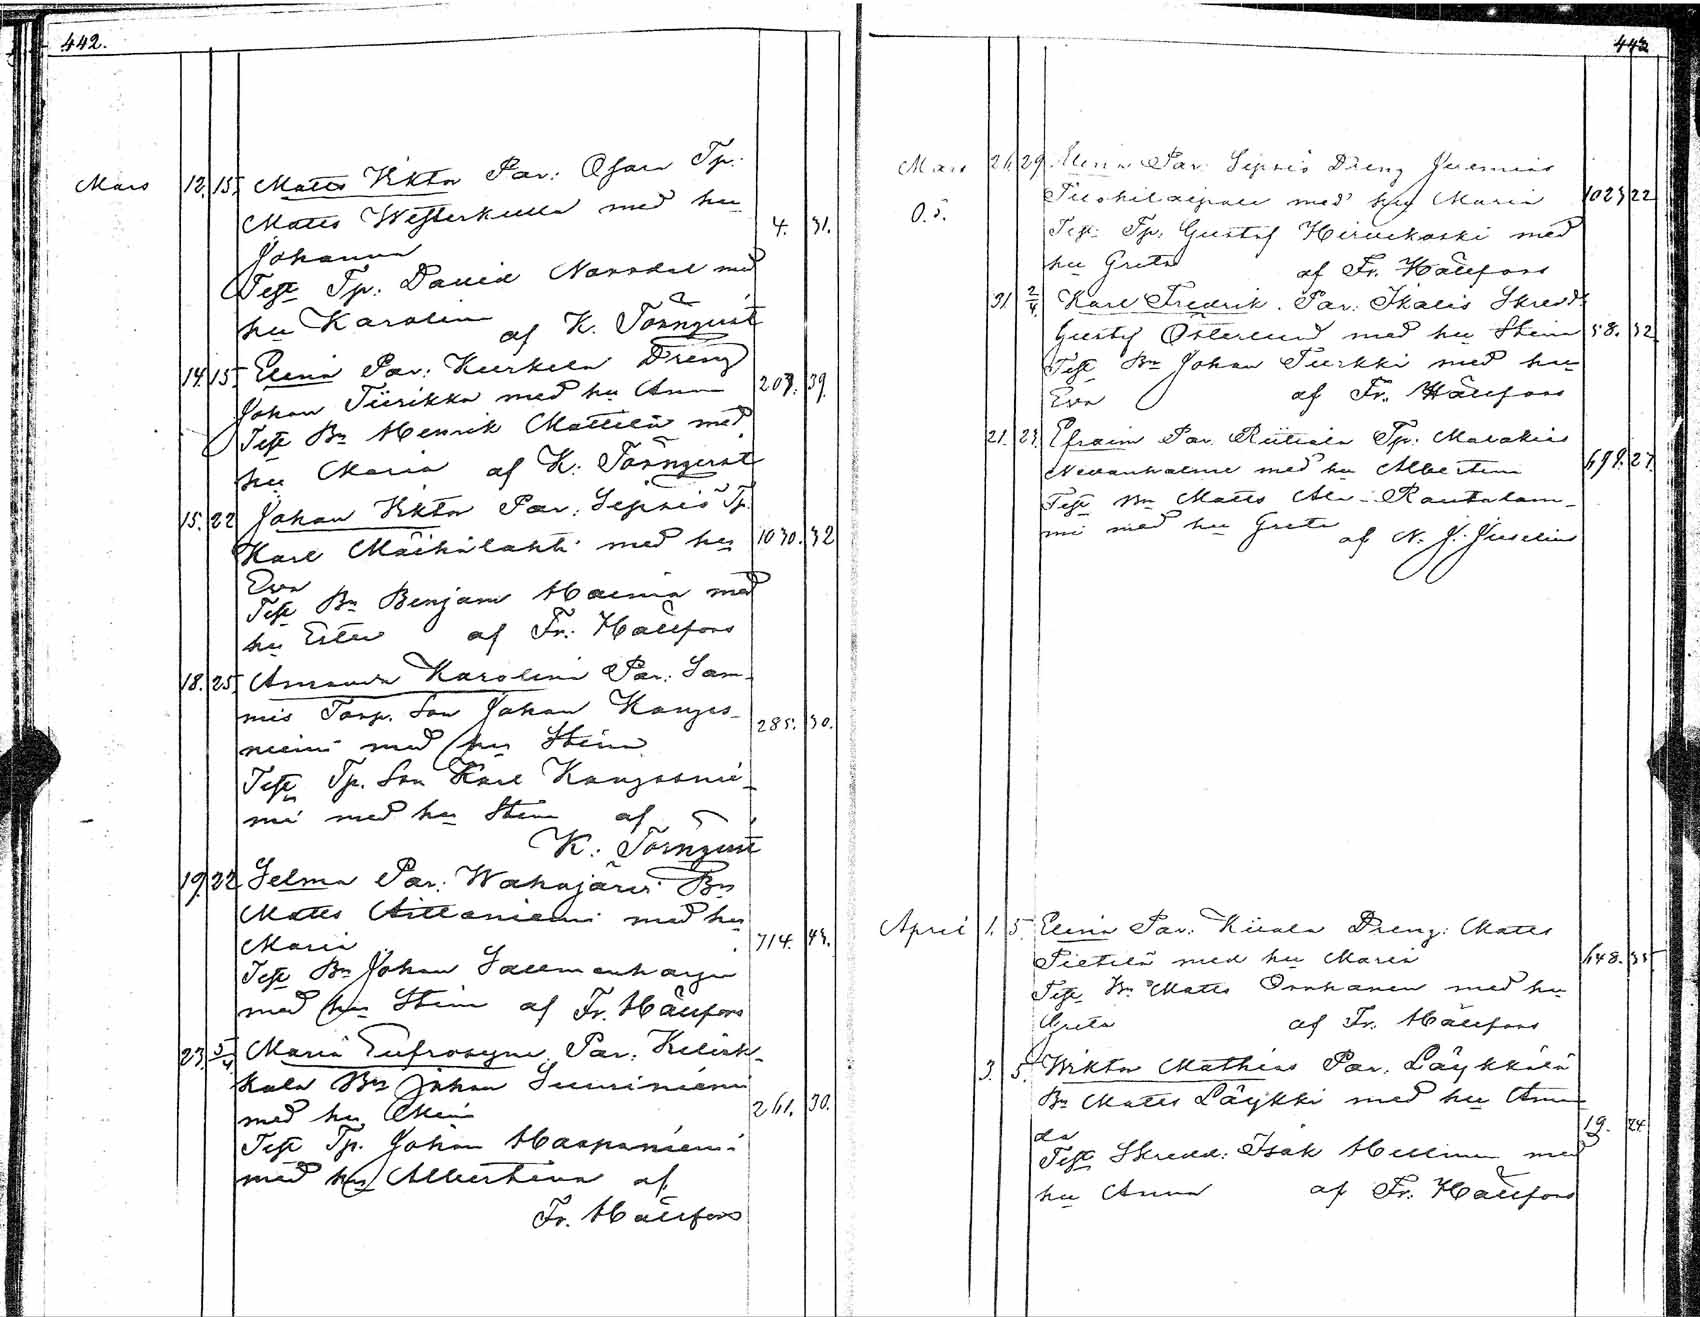 442.
Mars 12. 15. Matts Viktor Par: Ofara Tp:
Matts Westerkulla med hu
Johanna 4. 31.
Test Tp: David Norrdal med
hu Karolin af K. Törnqvist
14. 15. Elena Par: Kurkela Dreng
Johan Tiirikka med hu Ann 203. 39.
Test Bn Henrik Mattila med
hu Maria af K: Törnqvist
15. 22. Johan Viktor Par: Seppis Tp.
Karl Mäihälahti med hu 1030. 32
Eva
Test Bn Benjam med
hu Ester af Fr: Hällfors
18. 25. Amanda Karolina Par: Sam-
mis Torp. Son Johan Kanges-
niemi med hu Stina 285. 30.
Test Tp. Son Karl Kangasnie-
mi med hu Stina af
K: Törnqvist
19. 22 Selma Par: Wahojärvi Bn
Matts med hu
Maria 714. 43.
Test Bn Johan
med hu Stina af Fr. Hällfors
23. 5/4. Maria Eufrosyne Par: Kilvak-
kala Bn Johan Suuriniemi
med hu 261. 30.
Test Tp. Johan Haapaniemi
med hu Albertina af
Fr. Hällfors
443
Mars 26. 29. Elena Par: Seppis Dreng Jeremias
med hu Maria 1023 22
O.S. Test: Tp: Gustaf Hirvikoski med
hu Greta af Fr. Hällfors
31. 2/4. Karl Fredrik. Par: Ikalis Skredd:
Gustaf Österlund med hu Stina 58. 32
Test Bn Johan Turkki med hu
Eva af Fr. Hällfors
21. 23. Efraim Par. Riitiala Tp: Malakias
med hu Albertina 699. 27.
Test Bn Matts Ala-Rautalam-
mi med hu Greta af N. J. Juselius
April 1. 5. Elena Par: Kiiala Dreng: Matts
Pietilä med hu Maria 648. 35.
Test Bn Matts med hu
Greta af Fr. Hällfors
3. 5. Wiktor Mathias Par: Läykkälä
Bn Matts Läykki med hu Aman-
da 19. 24.
Test Skredd: Isak Hellman med
hu Anna af Fr. Hällfors